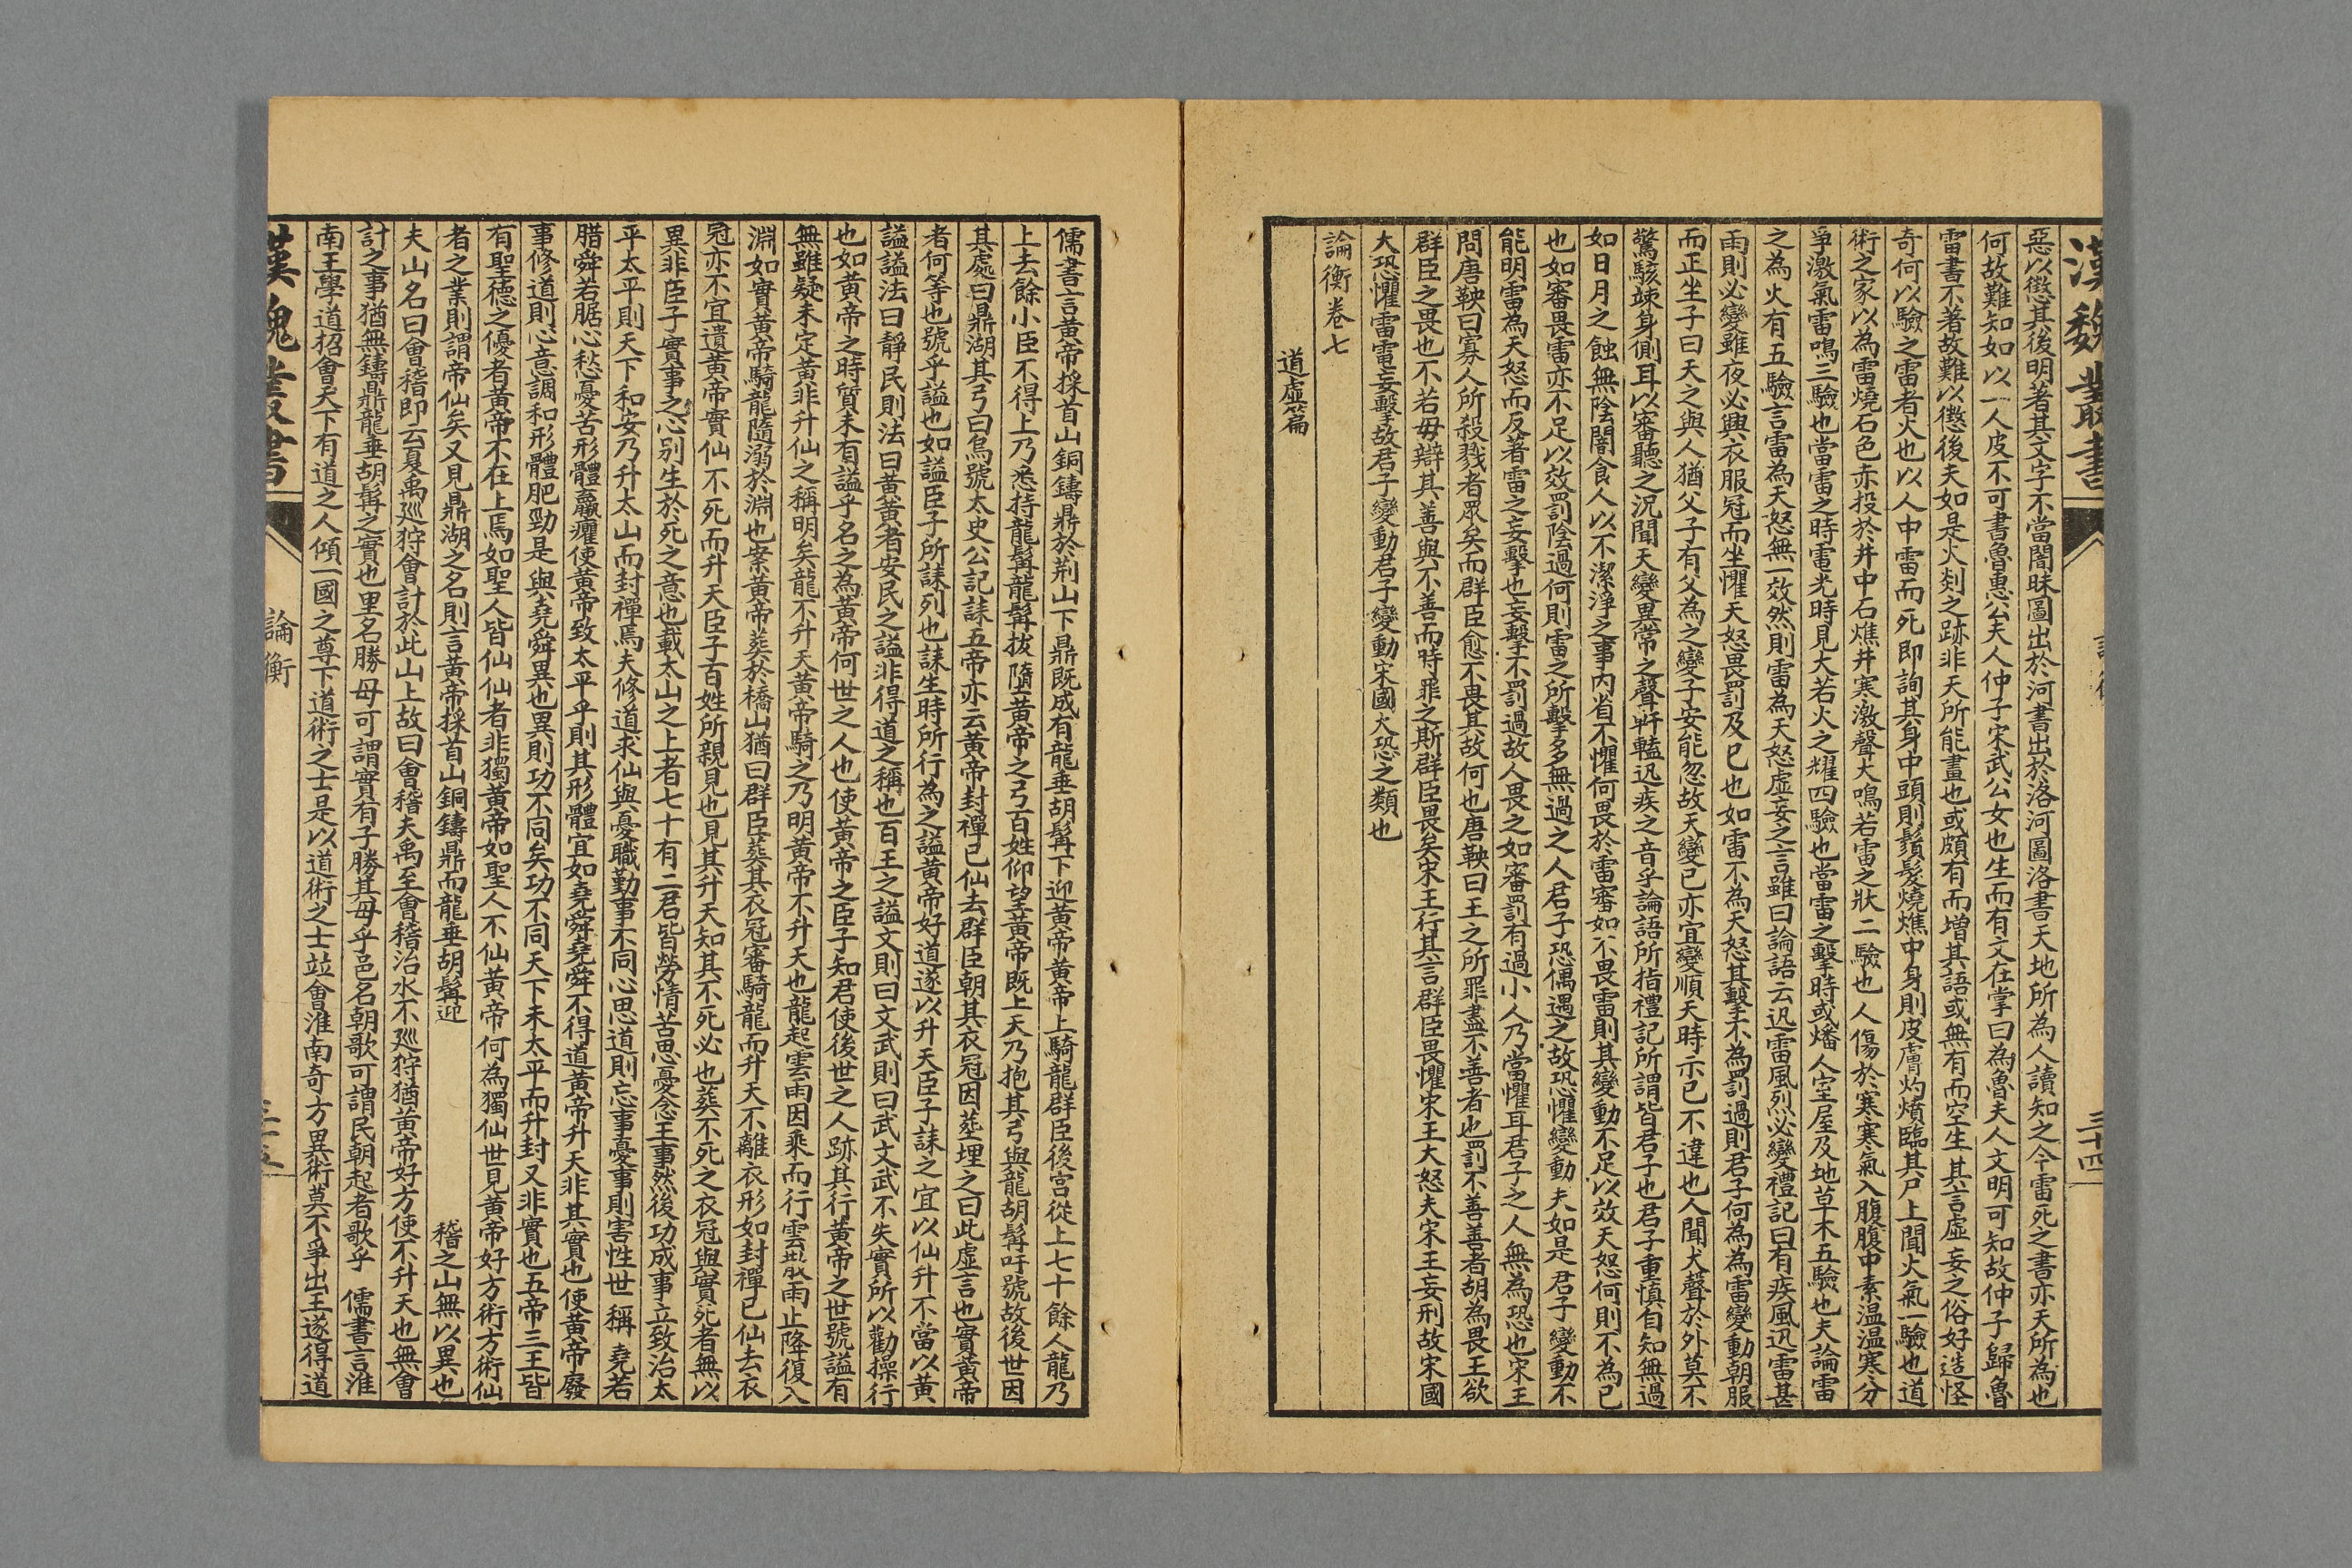 漢魏叢書
三十四
惡以懲其後明著其文字不當闇昧圖出於河書出於洛河圖洛書天地所為人讀知之今雷死之書亦天所為也
何故難知如以一人皮不可書魯惠公夫人仲子宋武公女也生而有文在掌曰為魯夫人文明可知故仲子歸魯
雷書不著故難以懲後夫如是火剡之跡非天所能畫也或頗有而增其語或無有而空生其言虛妄之俗好造怪
奇何以驗之雷者火也以人中雷而死即詢其身中頭則鬚髮燒燋中身則皮膚灼燌臨其尸上聞火氣一驗也道
術之家以為雷燒石色赤投於井中石燋井寒激聲大鳴若雷之狀二驗也人傷於寒寒氣入腹腹中素溫溫寒分
爭激氣雷鳴三驗也當雷之時電光時見大若火之耀四驗也當雷之擊時或燔人室屋及地草木五驗也夫論雷
之為火有五驗言雷為天怒無一效然則雷為天怒虛妄之言雖曰論語云迅雷風烈必變禮記曰有疾風迅雷甚
雨則必變雖夜必興衣服冠而坐懼天怒畏罰及己也如雷不為天怒其擊不為罰過則君子何為為雷變動朝服
而正坐子曰天之與人猶父子有父為之變子安能忽故天變己亦宜變順天時示己不違也人聞犬聲於外莫不
驚駭竦身側耳以審聽之況聞天變異常之聲軒䡷迅疾之音乎論語所指禮記所謂皆君子也君子重慎自知無過
如日月之蝕無陰闇食人以不潔淨之事內省不懼何畏於雷審如不畏雷則其變動不足以效天怒何則不為己
也如審畏雷亦不足以效罰陰過何則雷之所擊多無過之人君子恐偶遇之故恐懼變動夫如是君子變動不
能明雷為天怒而反著雷之妄擊也妄擊不罰過故人畏之如審罰有過小人乃當懼耳君子之人無為恐也宋王
問唐鞅曰寡人所殺戮者眾矣而群臣愈不畏其故何也唐鞅曰王之所罪盡不善者也罰不善善者胡為畏王欲
群臣之畏也不若毋辯其善與不善而時罪之斯群臣畏矣宋王行其言群臣畏懼宋王大怒夫宋王妄刑故宋國
大恐懼雷電妄擊故君子變動君子變動宋國大恐之類也
論衡卷七
道虛篇
儒書言黃帝採首山銅鑄鼎於荆山下鼎既成有龍垂胡髯下迎黃帝黃帝上騎龍群臣後宮從上七十餘人龍乃
上去餘小臣不得上乃悉持龍髯龍髯拔墮黃帝之弓百姓仰望黃帝既上天乃抱其弓與龍胡髯吁號故後世因
其處曰鼎湖其弓曰烏號太史公記誄五帝亦云黃帝封禪已仙去群臣朝其衣冠因塟埋之曰此虛言也實黃帝
者何等也號乎謚也如謚臣子所誄列也誄生時所行為之謚黃帝好道遂以升天臣子誄之宜以仙升不當以黃
謚謚法曰靜民則法曰黃黃者安民之謚非得道之稱也百王之謚文則曰文武則曰武文武不失實所以勸操行
也如黃帝之時質未有謚乎名之為黃帝何世之人也使黃帝之臣子知君使後世之人跡其行黃帝之世號謚有
無雖疑未定黃非升仙之稱明矣龍不升天黃帝騎之乃明黃帝不升天也龍起雲雨因乘而行雲散雨止降復入
淵如實黃帝騎龍隨溺於淵也案黃帝葬於橋山猶曰群臣葬其衣冠審騎龍而升天不離衣形如封禪已仙去衣
冠亦不宜遺黃帝實仙不死而升天臣子百姓所親見也見其升天知其不死必也葬不死之衣冠與實死者無以
異非臣子實事之心別生於死之意也載太山之上者七十有二君皆勞情苦思憂念王事然後功成事立致治太
平太平則天下和安乃升太山而封禪焉夫修道求仙與憂職勤事不同心思道則忘事憂事則害性世稱堯若
腊舜若腒心愁憂苦形體羸癯使黃帝致太平乎則其形體宜如堯舜堯舜不得道黃帝升天非其實也使黃帝廢
事修道則心意調和形體肥勁是與堯舜異也異則功不同矣功不同天下未太平而升封又非實也五帝三王皆
有聖德之優者黃帝不在上焉如聖人皆仙仙者非獨黃帝如聖人不仙黃帝何為獨仙世見黃帝好方術方術仙
者之業則謂帝仙矣又見鼎湖之名則言黃帝採首山銅鑄鼎而龍垂胡髯迎 稽之山無以異也
夫山名曰會稽即云夏禹巡狩會計於此山上故曰會稽夫禹至會稽治水不巡狩猶黃帝好方使不升天也無會
計之事猶無鑄鼎龍垂胡髯之實也里名勝母可謂實有子勝其母乎邑名朝歌可謂民朝起者歌乎 儒書言淮
南王學道招會天下有道之人傾一國之尊下道術之士是以道術之士竝會淮南奇方異術莫不爭出王遂得道
漢魏叢書
論衡